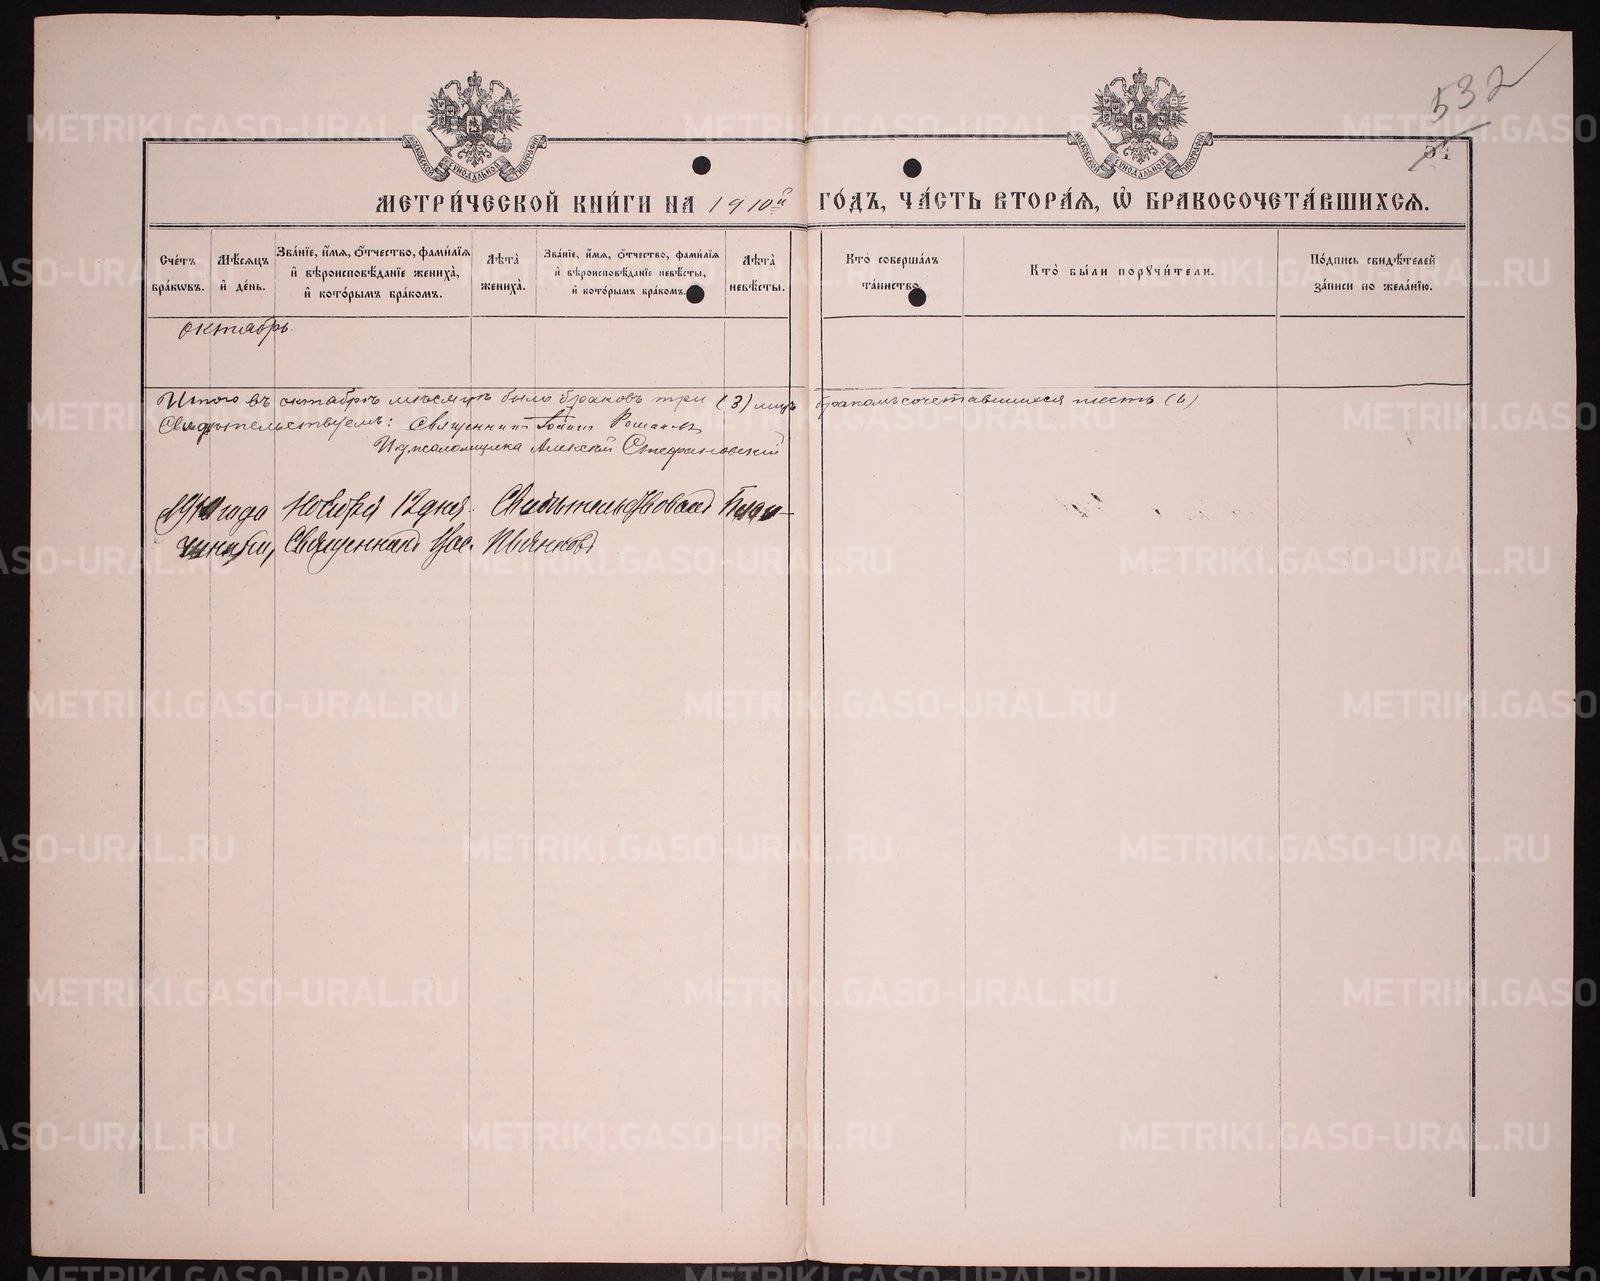 532
54
МОСКОВСКОЙ СУНОДАЛЬНОЙ ТИПОГРАФІИ
МОСКОВСКОЙ СУНОДАЛЬНОЙ ТИПОГРАФІИ
МЕТРИ́ЧЕСКОЙ КНИ́ГИ НА 1910й ГО́ДЪ, ЧА́СТЬ ВТОРА́Я, Ѽ БРАКОСОЧЕТА́ВШИХСЯ.
Сче́тъ бра́кѡвъ.
Мѣ́сяцъ и҆ де́нь.
Зва́нїе, и҆́мя, ѻ҆́тчество, фами́лїя и҆ вѣроисповѣ́данїе жениха̀, и҆ кото́рымъ бра́комъ.
Лѣ́та жениха̀.
Зва́нїе, и҆́мя, ѻ҆́тчество, фами́лїя и҆ вѣроисповѣ́данїе невѣ́сты, и҆ кото́рымъ бра́комъ.
Лѣ́та невѣ́сты.
Кто̀ соверша́лъ та́инство
Кто̀ бы́ли порꙋчи́тели.
По́дпись свидѣ́телей за́писи по жела́нїю.
октябрь.
Итого въ октябрѣ мѣсяцѣ было браковъ три (3) лицъ бракомъ сочетавшихся шесть (6)
Свидѣтельствуемъ: Священникъ Іоаннъ Романовъ
И д псаломщика Алексѣй Стефановскій
1910 года Ноября 12 дня. Свидѣтельствовалъ Благо-
чинный, Священникъ Пьянковъ
METRIKI.GASO-URAL.RU